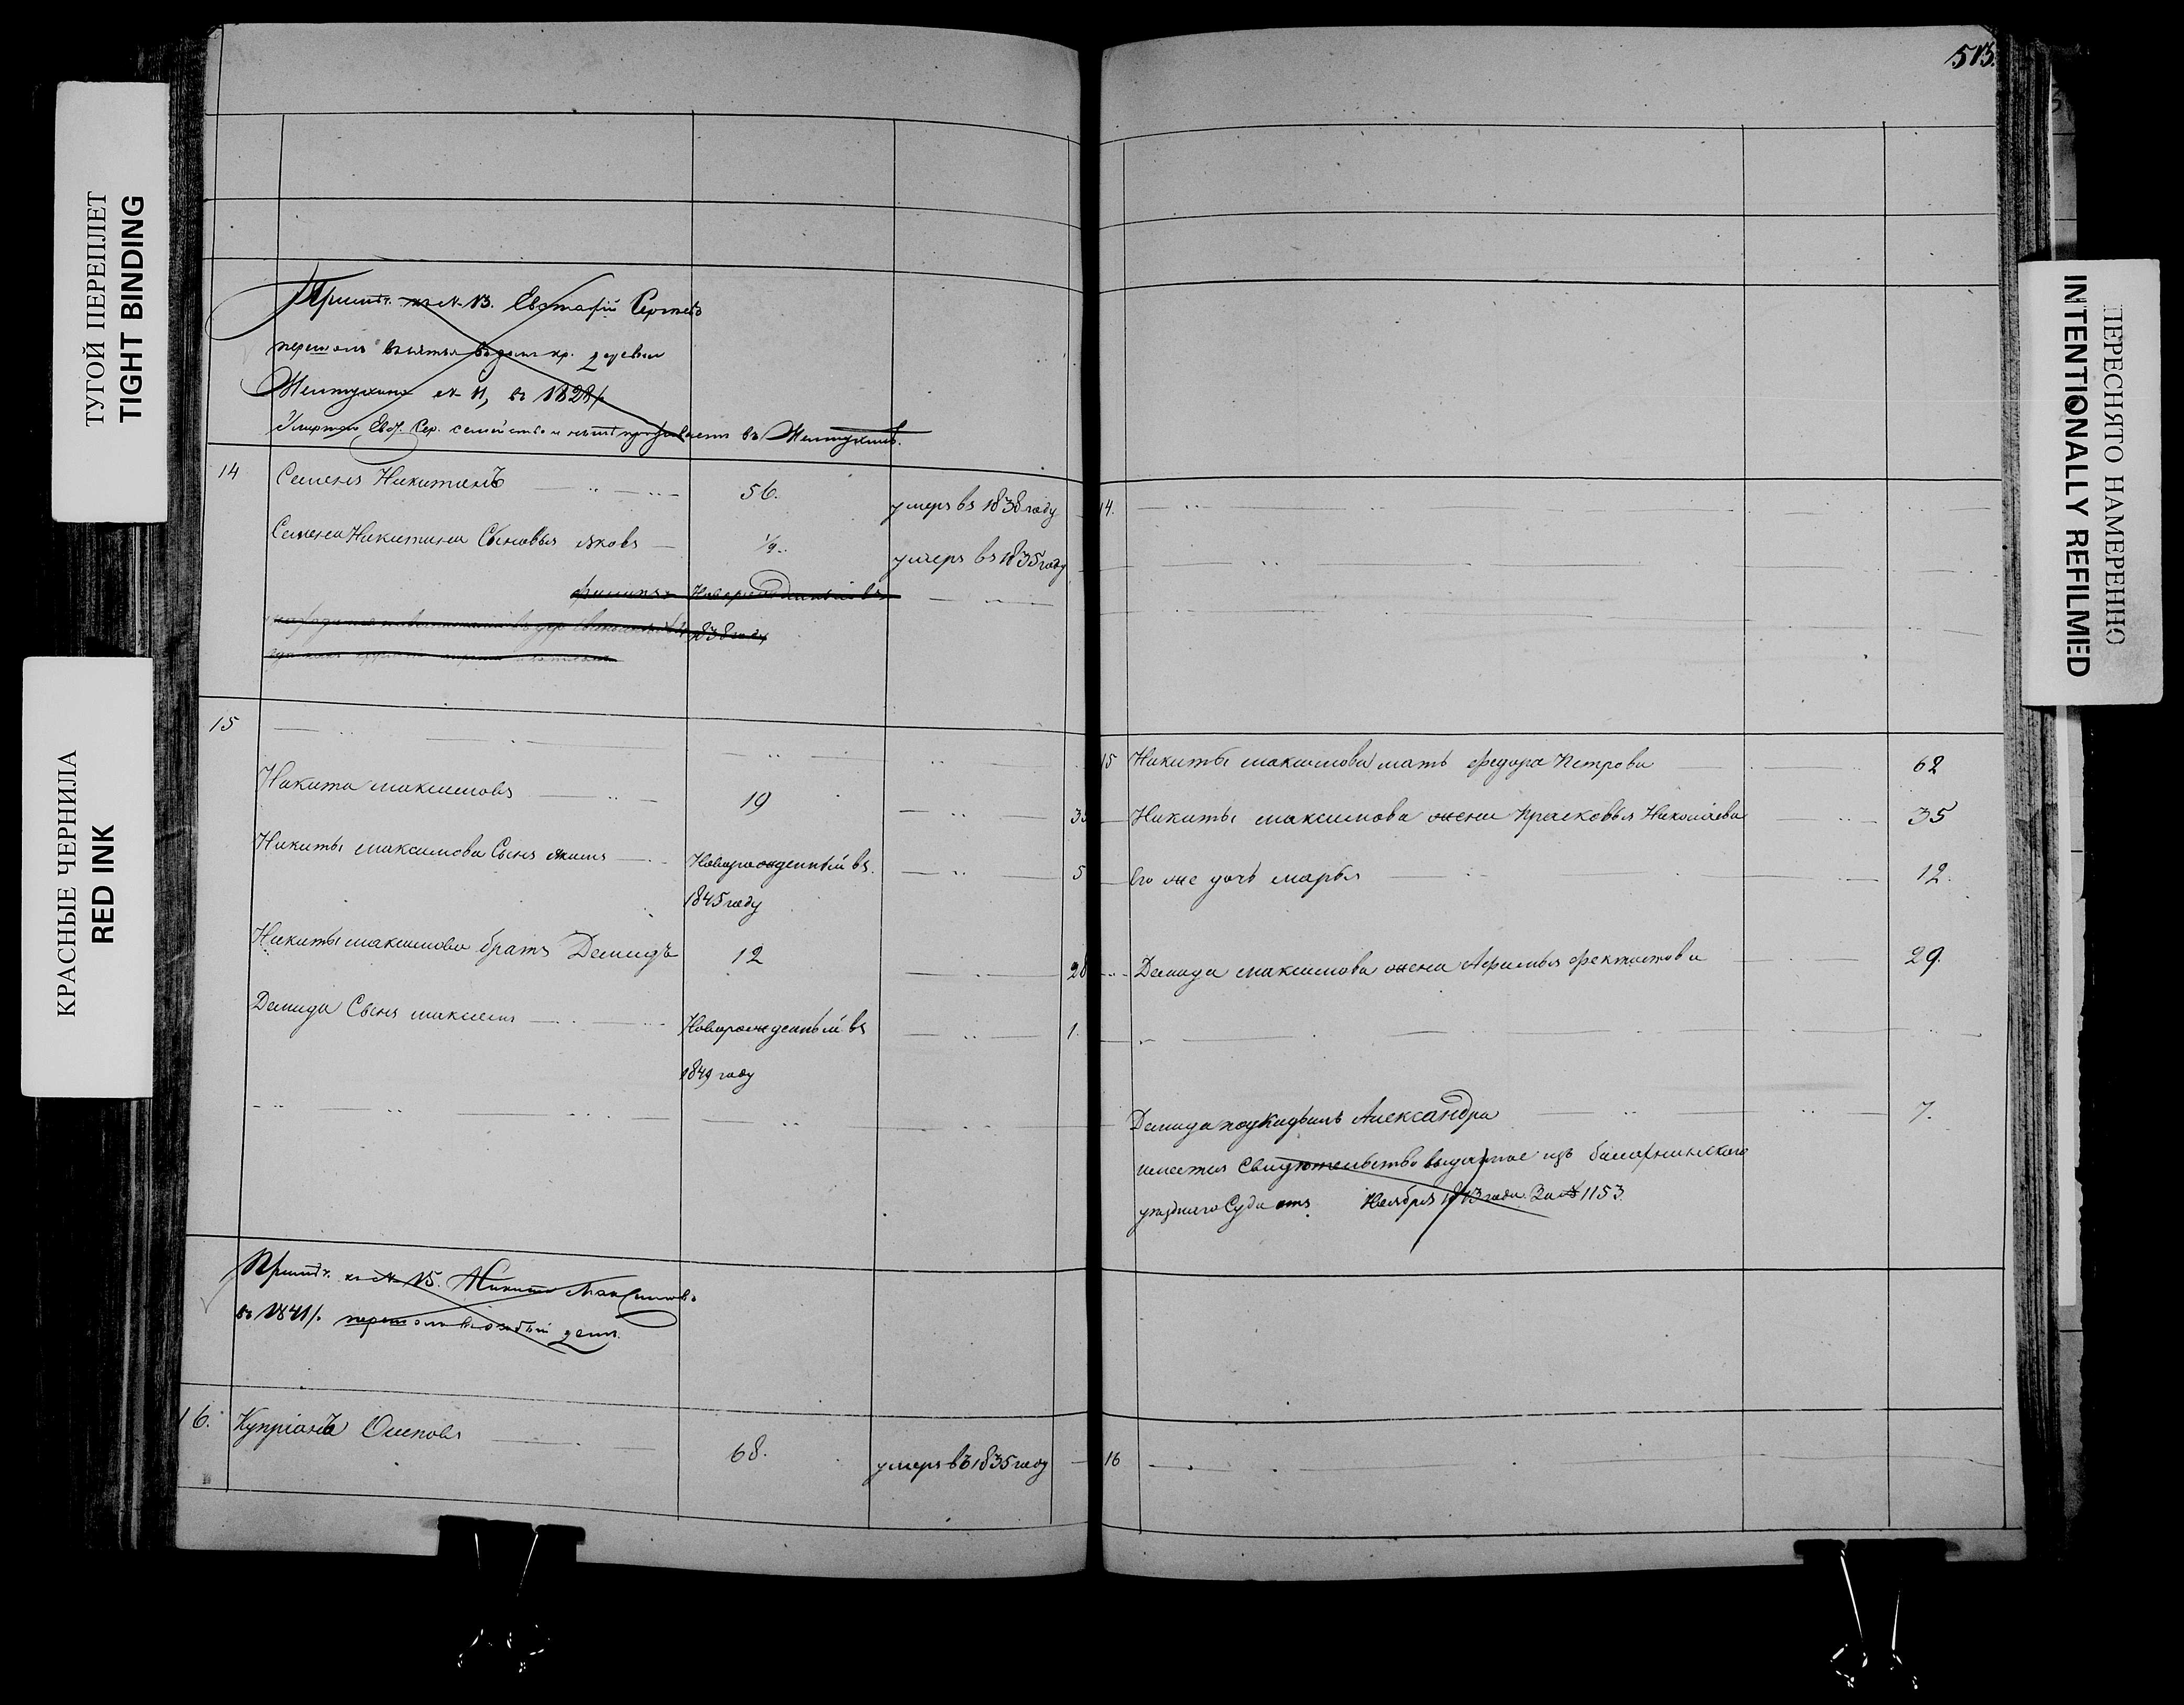 513.
ТУГОЙ ПЕРЕПЛЕТ
TIGHT BINDING
КРАСНЫЕ ЧЕРНИЛА
RED INK
ПЕРЕСНЯТО НАМЕРЕННО
INTENTIONALLY REFILMED
Примѣч. къ № 13. Евстафій Сергѣевъ
перешолъ въ домъ кр. деревни
Желтухина № 11, въ 1828 г.
семейство въ Желтухинѣ.
14 Семенъ Никитинъ 56. умеръ въ 1838 году
Семена Никитина Сыновья Яковъ 1/9 умеръ въ 1835 году
Филипъ Новорожденный въ
1838 году
15
Никита Максимовъ 19
Никиты Максимова Сынъ Якимъ Новорожденный въ 5
1845 году
Никиты Максимова братъ Демидъ 12 28
Демида Сынъ Максимъ Новорожденный въ 1.
1849 году
Примѣч. къ № 15. Никита Максимовъ
въ 1841 г. перешолъ въ особый домъ.
16. Купріянъ Осиповъ 68. умеръ въ 1835 году
14.
15 Никиты Максимова мать Федора Петрова 62
Никиты Максимова жена Прасковья Николаева 35
Его же дочь Марья 12.
Демида Максимова жена Афимья Фектистова 29.
Демида подкидышъ Александра 7.
имеется Свидѣтельство выданное изъ
уѣзднаго Суда отъ Ноября 1843 года За № 1153.
16